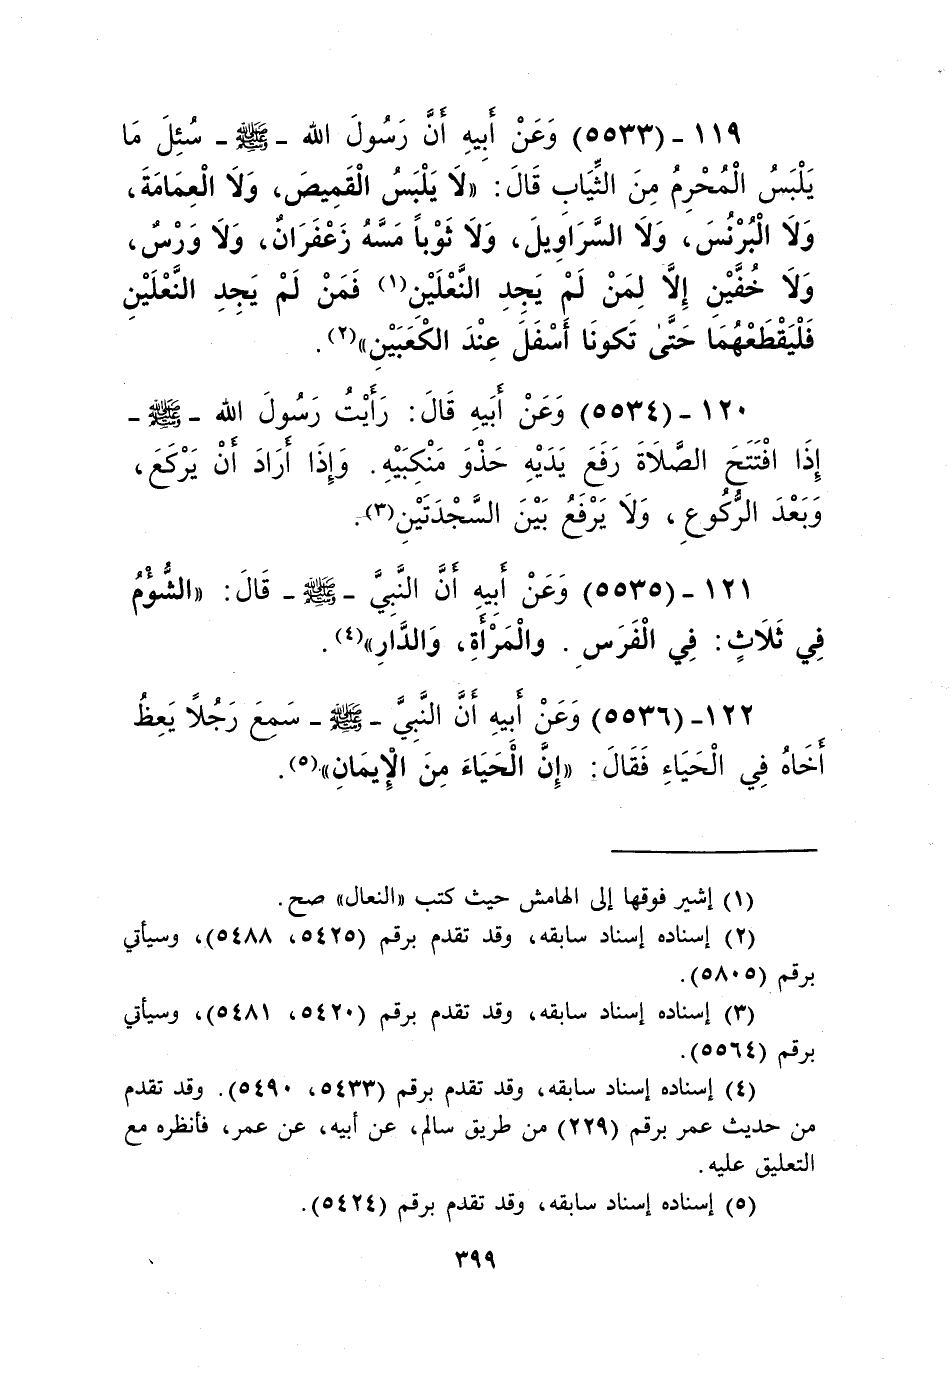 ١١٩ - (٥٥٣٣) وَعَنْ أَبِيهِ أَنَّ رَسُولَ الله - ﷺ - سُئِلَ مَا
يَلْبَسُ الْمُحْرِمُ مِنَ الثِّيَابِ قَالَ: «لَا يَلْبَسُ الْقَمِيصَ، وَلَا الْعِمَامَةَ،
وَلَا الْبُرْنُسَ، وَلَا السَّرَاوِيلَ، وَلَا ثَوْباً مَسَّهُ زَعْفَرَانٌ، وَلَا وَرْسٌ،
وَلَا خُفَّيْنِ إِلَّا لِمَنْ لَمْ يَجِدِ النَّعْلَيْنِ(١) فَمَنْ لَمْ يَجِدِ النَّعْلَيْنِ
فَلْيَقْطَعْهُمَا حَتَّىٰ تَكونَا أَسْفَلَ عِنْدَ الكْعَبَيْنِ»(٢).
١٢٠ - (٥٥٣٤) وَعَنْ أَبَيهِ قَالَ: رَأَيْتُ رَسُولَ الله - ﷺ -
إِذَا افْتَتَحَ الصَّلَاةَ رَفَعَ يَدَيْهِ حَذْوَ مَنْكِبَيْهِ. وَإِذَا أَرَادَ أَنْ يَرْكَعَ،
وَبَعْدَ الرُّكُوعِ، وَلَا يَرْفَعُ بَيْنَ السَّجْدَتَيْنِ(٣).
١٢١ - (٥٥٣٥) وَعَنْ أَبِيهِ أَنَّ النَّبِيَّ - ﷺ - قَالَ: «الشُّؤْمُ
فِي ثَلَاثٍ: فِي الْفَرَسِ . والْمَرْأَةِ، وَالدَّارِ»(٤).
١٢٢ - (٥٥٣٦) وَعَنْ أَبِيهِ أَنَّ النَّبِيَّ - ﷺ - سَمِعَ رَجُلاً يَعِظُ
أَخَاهُ فِي الْحَيَاءِ فَقَالَ: «إِنَّ الْحَيَاءَ مِنَ الْإِيمَانِ»(٥).
(١) إشير فوقها إلى الهامش حيث كتب «النعال» صح.
(٢) إسناده إسناد سابقه، وقد تقدم برقم (٥٤٢٥، ٥٤٨٨)، وسيأتي
برقم (٥٨٠٥).
(٣) إسناده إسناد سابقه، وقد تقدم برقم (٥٤٢٠، ٥٤٨١)، وسيأتي
برقم (٥٥٦٤).
(٤) إسناده إسناد سابقه، وقد تقدم برقم (٥٤٣٣، ٥٤٩٠). وقد تقدم
من حديث عمر برقم (٢٢٩) من طريق سالم، عن أبيه، عن عمر، فأنظره مع
التعليق عليه.
(٥) إسناده إسناد سابقه، وقد تقدم برقم (٥٤٢٤).
٣٩٩